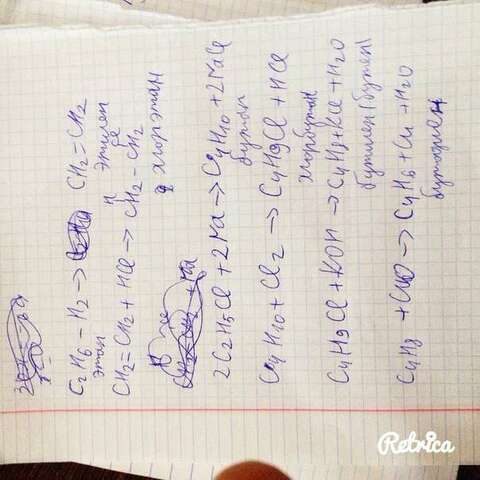 C2H6 - H2 → CH2=CH2
этан этилен
H Cl
CH2=CH2 + HCl → CH2 - CH2
хлорэтан
2C2H5Cl + 2Na → C4H10 + 2NaCl
бутан
C4H10 + Cl2 → C4H9Cl + HCl
хлорбутан
C4H9Cl + KOH → C4H8 + KCl + H2O
бутилен (бутен)
C4H8 + CuO → C4H6 + Cu + H2O
бутадиен
Retrica